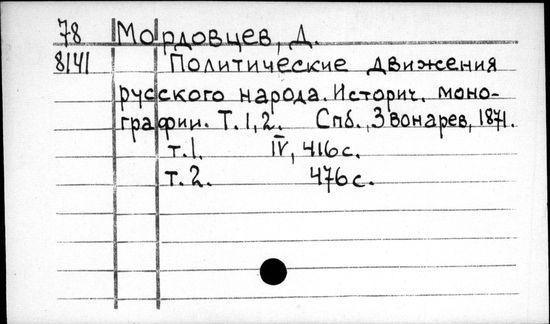 78 Мордовцев, Д.
8141 Политические движения
русского народа. Историч. моно-
графии. Т. 1, 2. Спб., Звонарев, 1871.
т. 1. IV, 416 с.
т. 2. 476 с.